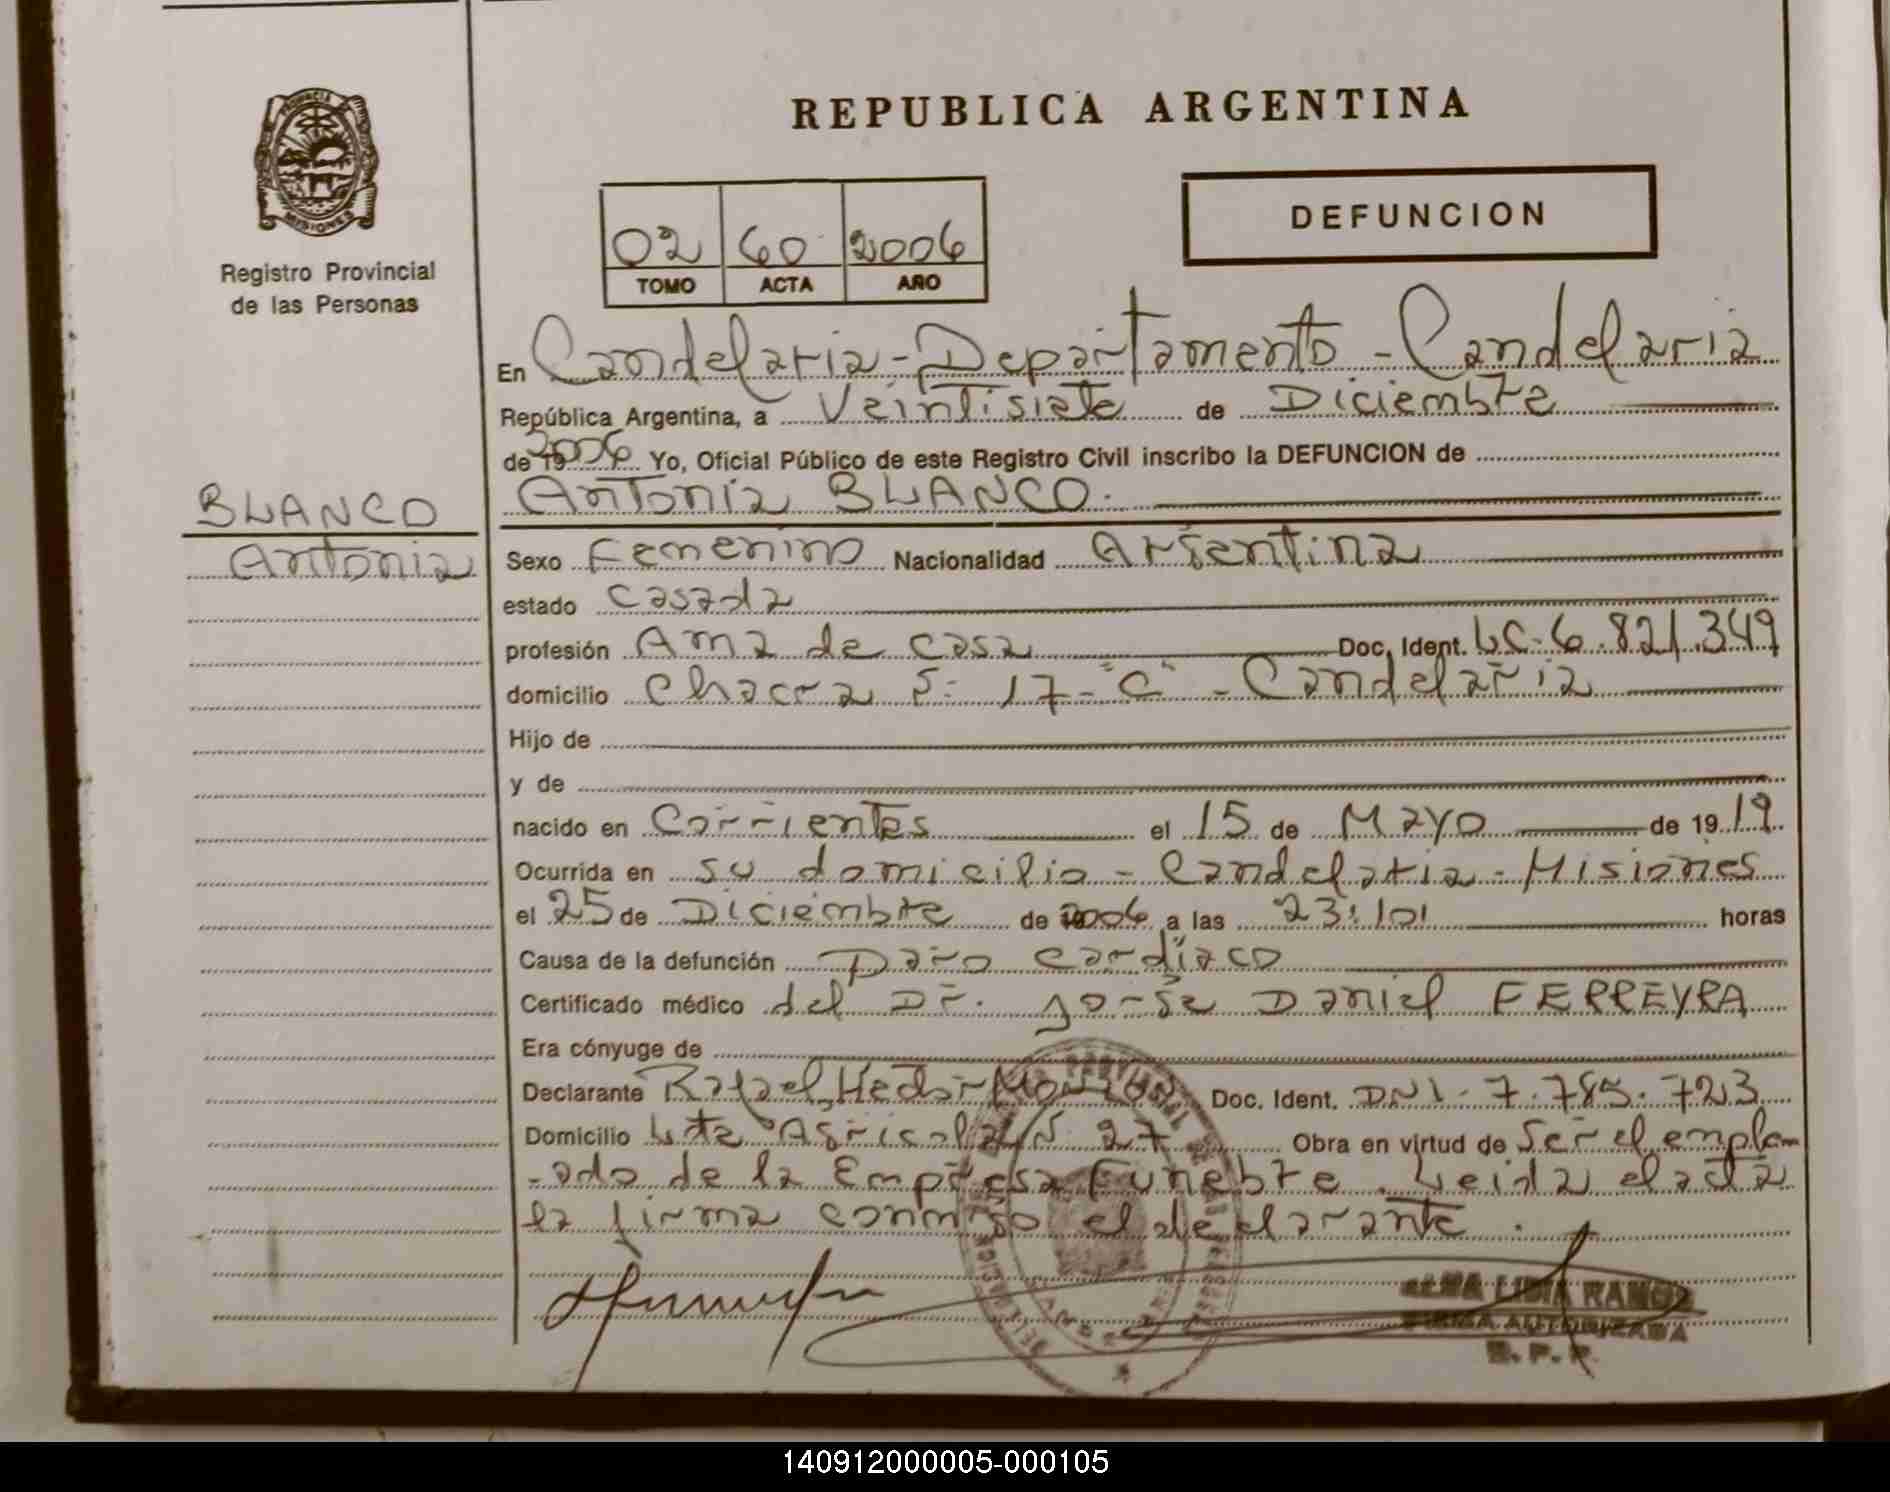 REPUBLICA ARGENTINA
PROVINCIA
MISIONES
Registro Provincial
de las Personas
02 60 2006
TOMO ACTA AÑO
DEFUNCION
En Candelaria - Departamento - Candelaria
República Argentina, a Veintisiete de Diciembre
de 19 2006 Yo, Oficial Público de este Registro Civil inscribo la DEFUNCION de
Antonia BLANCO.
BLANCO
Antonia
Sexo Femenino Nacionalidad Argentina
estado Casada
profesión Ama de casa Doc. Ident. LC. 6.821.349
domicilio Chacra 5- 17- "C" - Candelaria
Hijo de
y de
nacido en Corrientes el 15 de Mayo de 1919
Ocurrida en su domicilio - Candelaria - Misiones
el 25 de Diciembre de 2006 a las 23:10 horas
Causa de la defunción Paro Cardíaco
Certificado médico del Dr. Jorge Daniel FERREYRA
Era cónyuge de
Declarante Rafael Hector Doc. Ident. DNI- 7.785.723
Domicilio Lote Agricola N 27 Obra en virtud de Ser el emple-
-ado de la Empresa Funebre. Leida el acta
la firma conmigo el declarante.
ALBA LIDIA RAMOS
FIRMA AUTORIZADA
R. P. P.
140912000005-000105